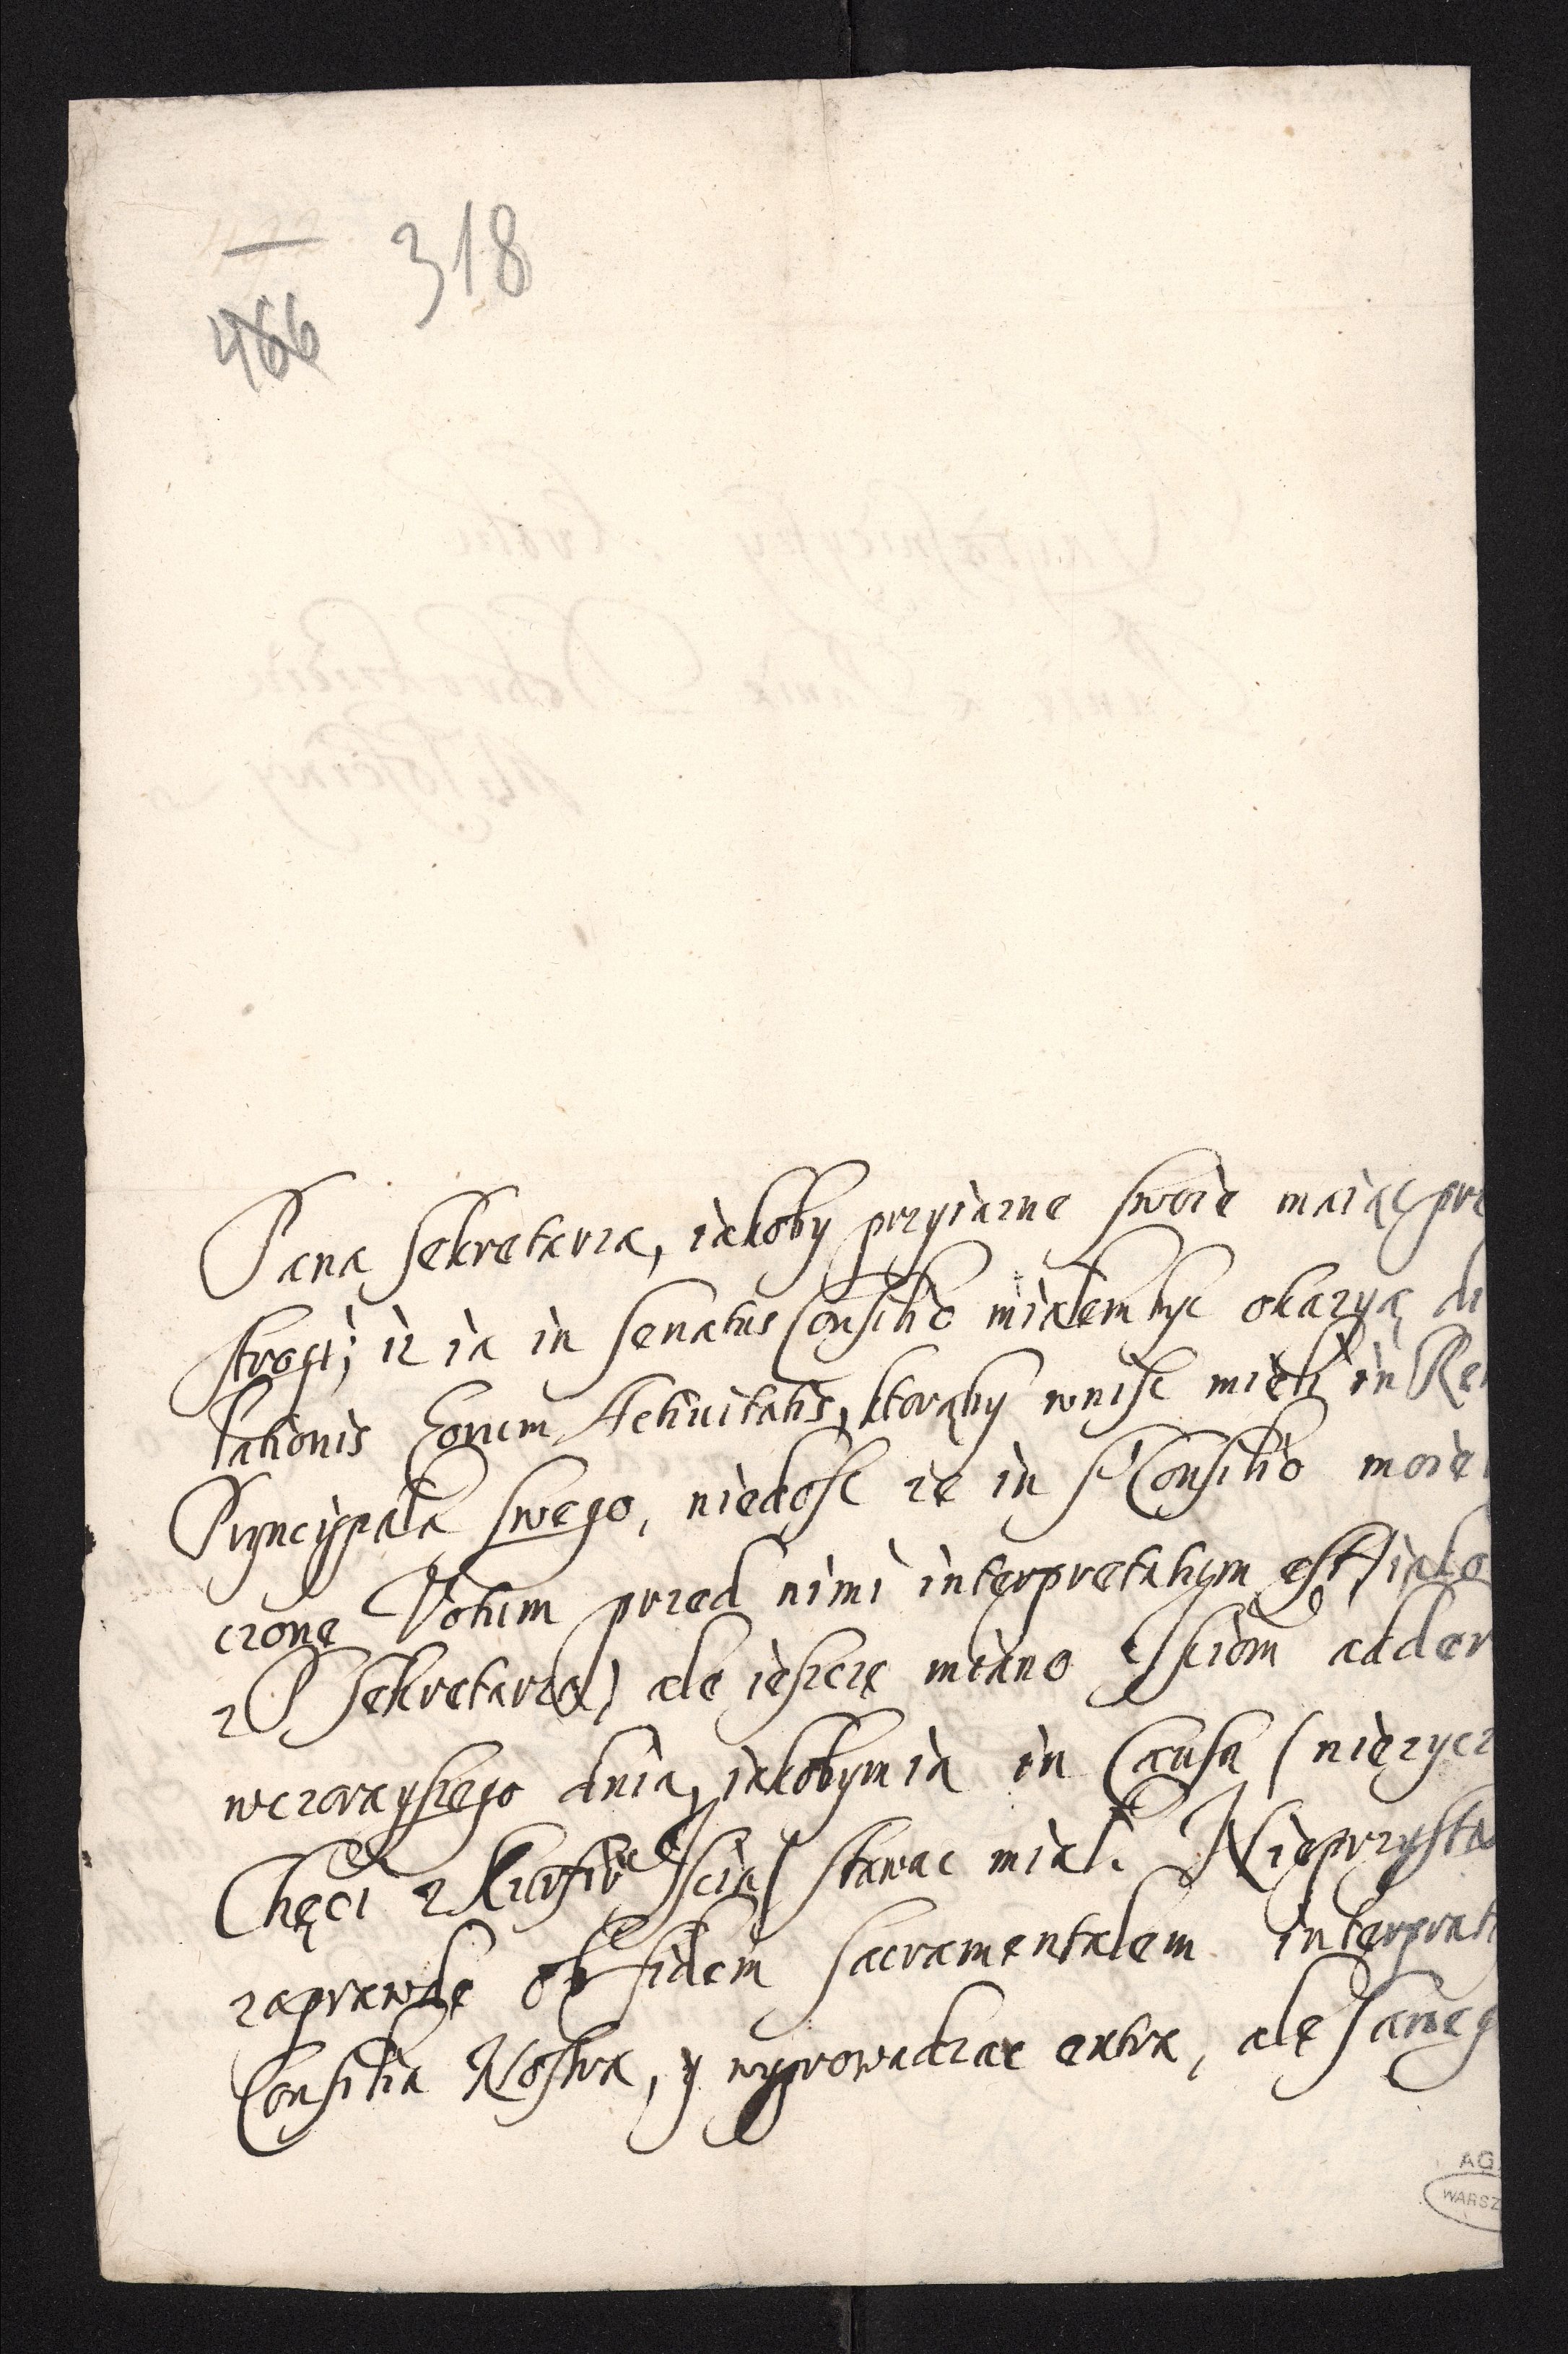 318
466
Pana Sekretarza, iakoby przyiazne swoie maiąc prz
strogi; iz ia in Senatus Consilio mialem byc okazyą di
lationis Eorum Activitatis, ktorąby wnisc mieli in Re
Pryncypala swego, niedosc ze in S Consilio moie
czone Votum przed nimi interpretatum est, iako
z P Sekretarza) ale ieszcze miano Xsciom adder
wczorayszego dnia, iakobym ia in Causa (niezycz
Chęci Xscia) stawac mial. Nieprzysta
zaprawde ob fidem Sacramentalem interpret
Consilia Nostra, y wyprowadzac extra, ale sameg
AG
WARSZ